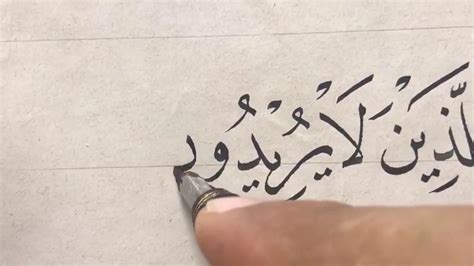 لَّذِيْنَ لَا يُرِيْدُو